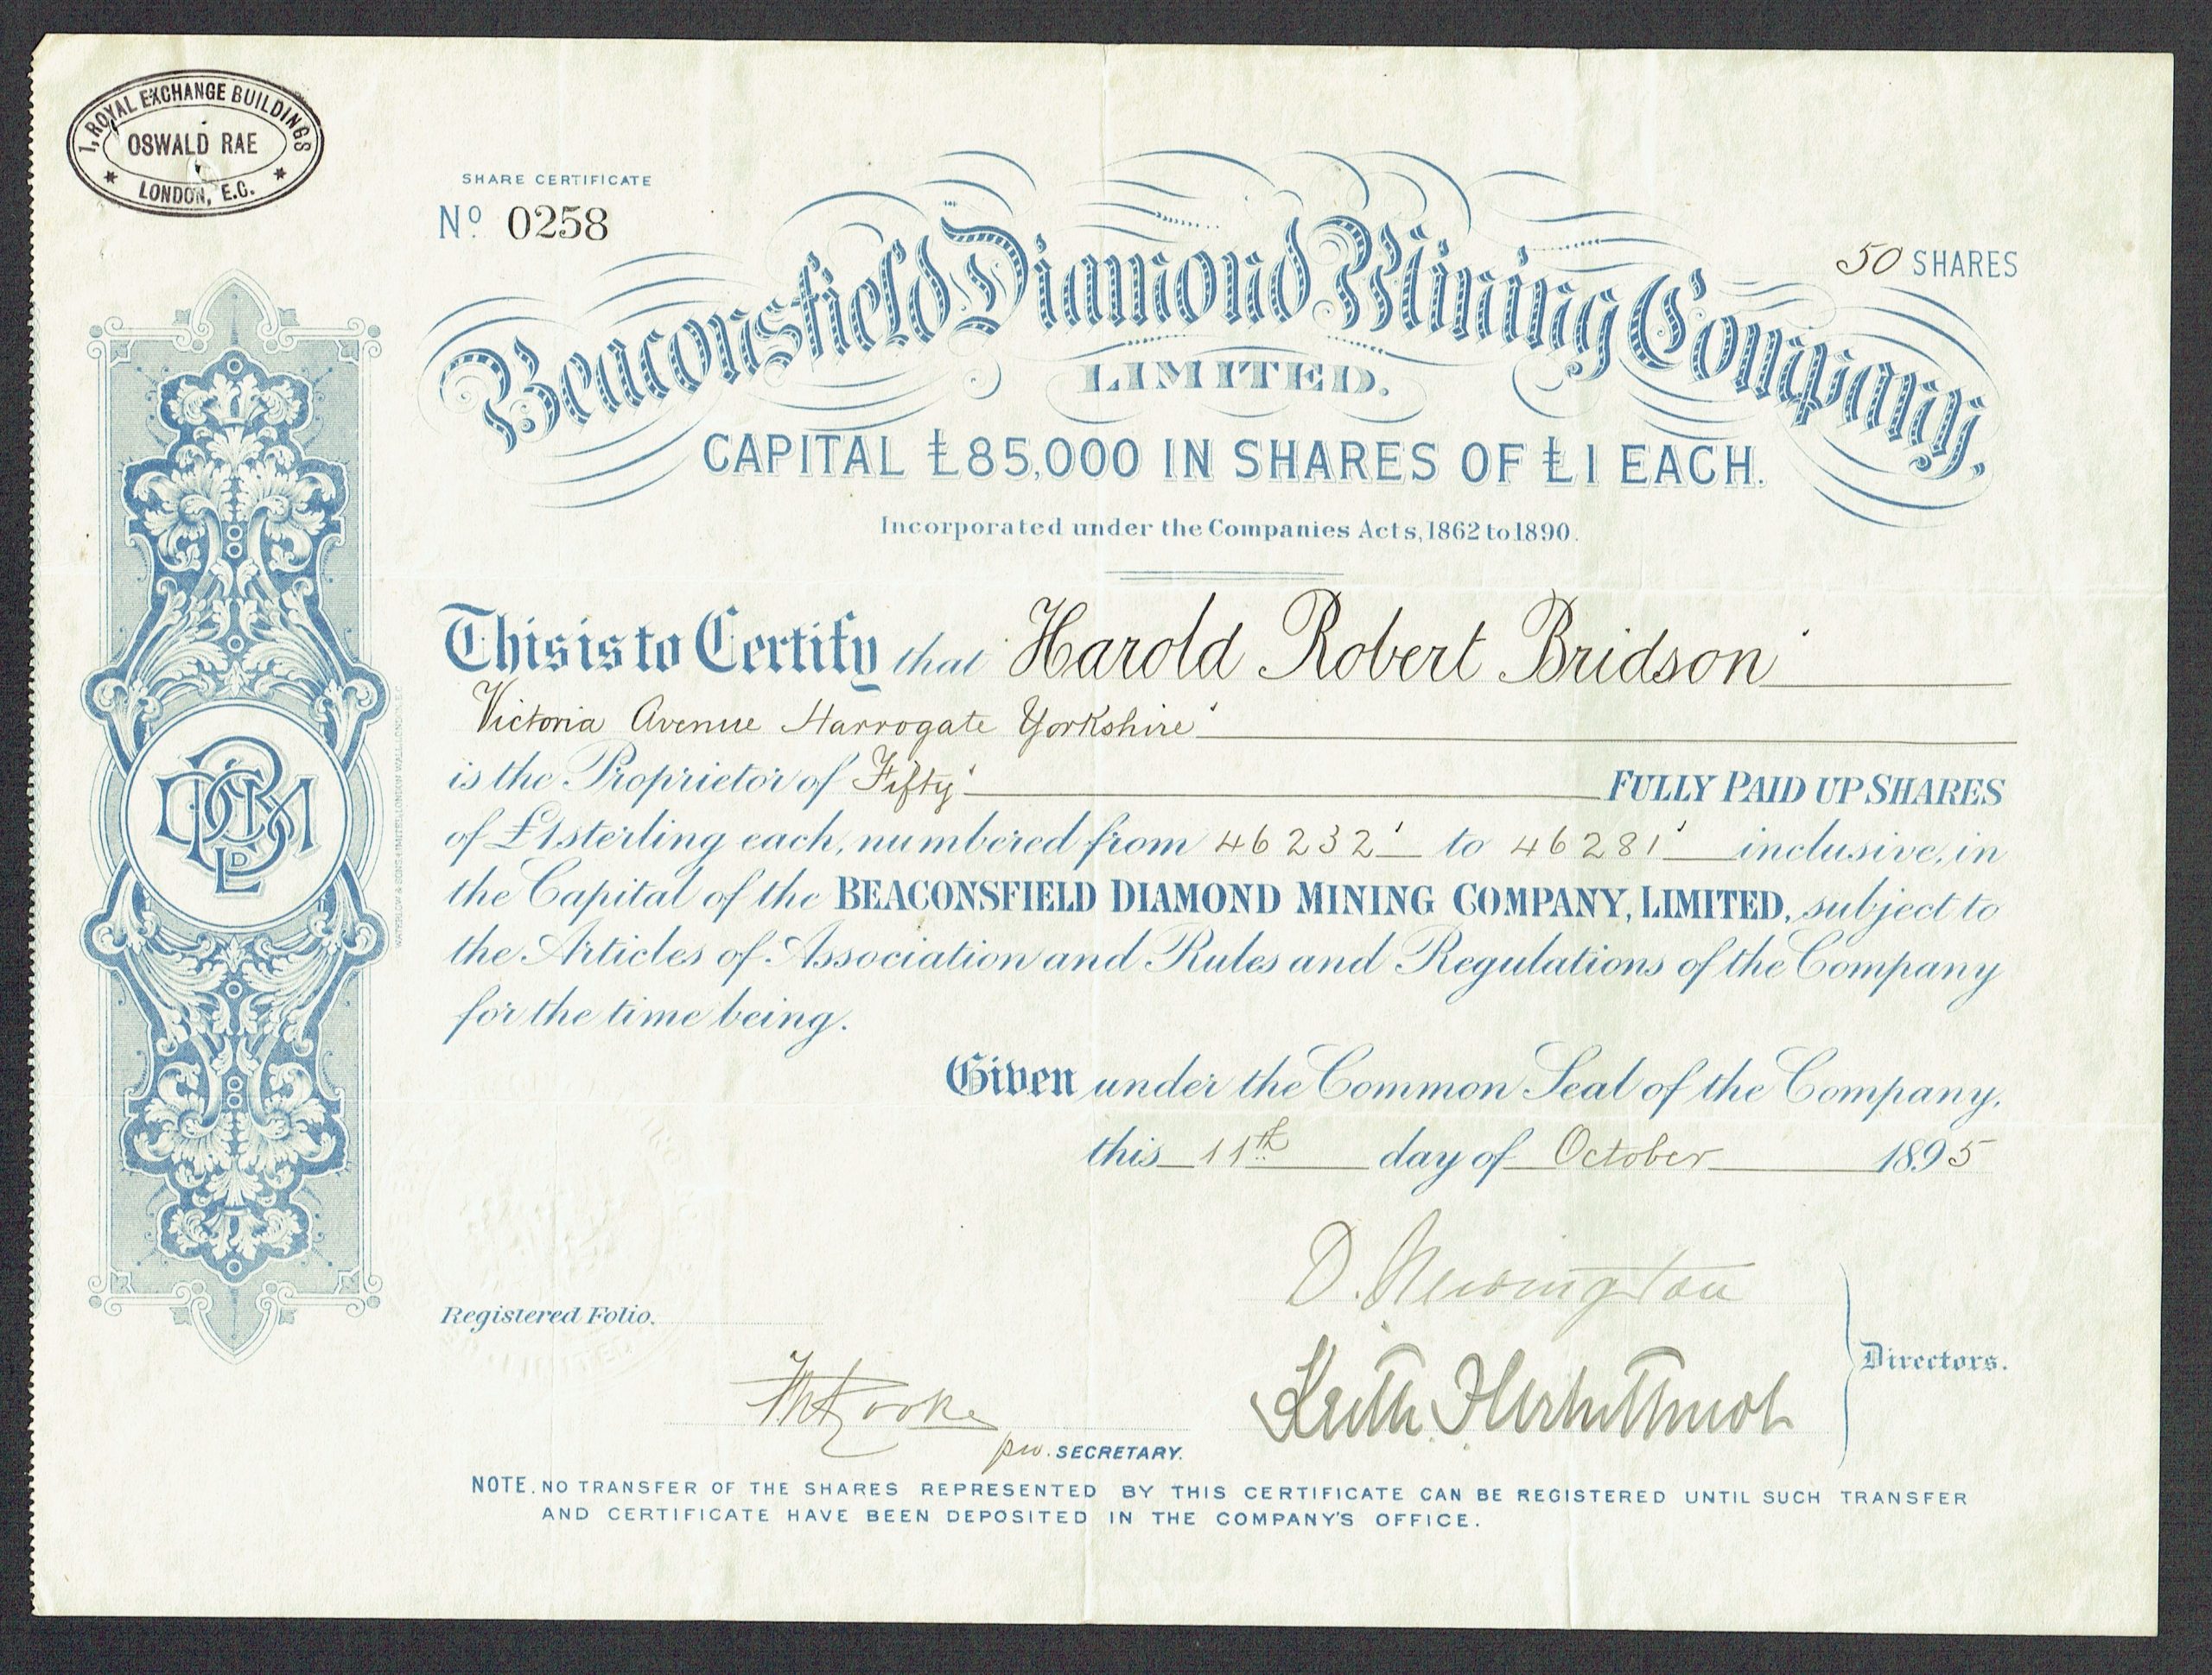 1, ROYAL EXCHANGE BUILDINGS
OSWALD RAE
* LONDON, E.C. *
SHARE CERTIFICATE
Nº 0258
50 SHARES
Beaconsfield Diamond Mining Company,
LIMITED.
CAPITAL £85,000 IN SHARES OF £1 EACH.
Incorporated under the Companies Acts, 1862 to 1890.
This is to Certify that Harold Robert Bridson
Victoria Avenue Harrogate Yorkshire
is the Proprietor of Fifty FULLY PAID UP SHARES
of £1 sterling each, numbered from 46232 to 46281 inclusive, in
the Capital of the BEACONSFIELD DIAMOND MINING COMPANY, LIMITED, subject to
the Articles of Association and Rules and Regulations of the Company
for the time being.
Given under the Common Seal of the Company,
this 11th day of October 1895
D. Newington
Registered Folio.
Directors.
SECRETARY.
NOTE. NO TRANSFER OF THE SHARES REPRESENTED BY THIS CERTIFICATE CAN BE REGISTERED UNTIL SUCH TRANSFER
AND CERTIFICATE HAVE BEEN DEPOSITED IN THE COMPANY'S OFFICE.